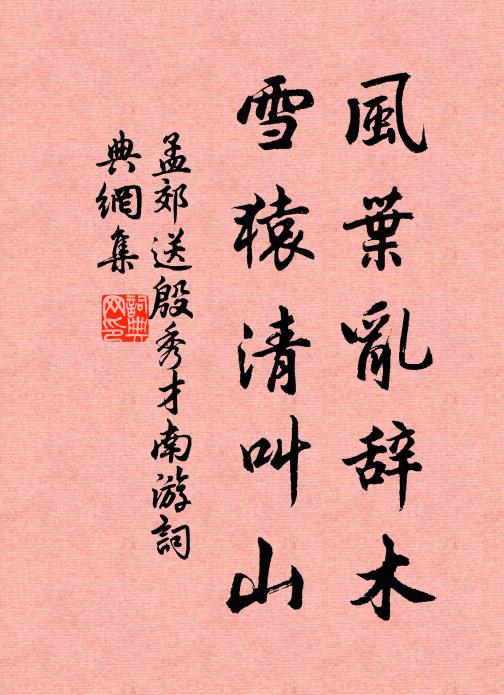 風葉亂辞木
雪猿清叫山
孟郊送殷秀才南游詞
典網集
詞典
网印